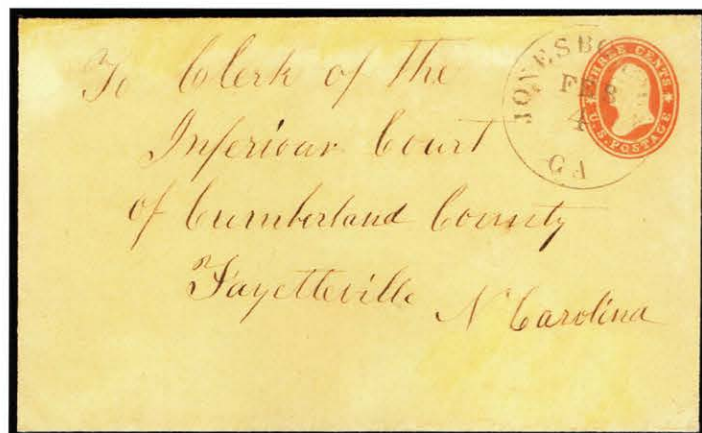 To Clerk of The
Inferiour Court
of Cumberland County
Fayetteville N Carolina
JONESBO
FEB
4
GA
THREE CENTS
U.S. POSTAGE